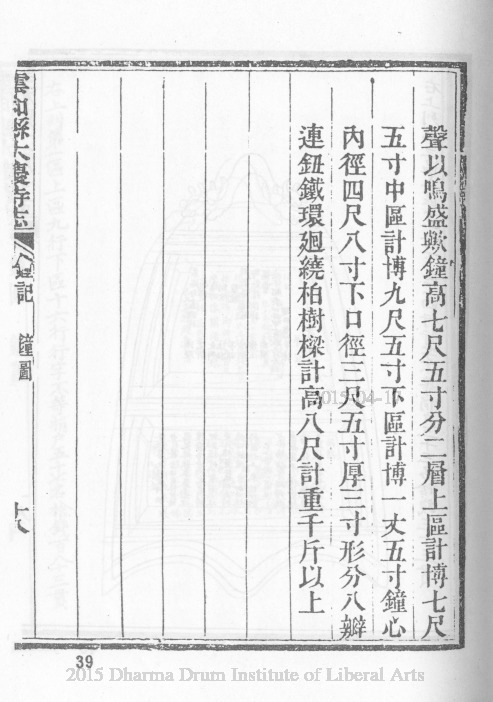 聲以鳴盛歟鐘高七尺五寸分二層上區計博七尺
五寸中區計博九尺五寸下區計博一丈五寸鐘心
內徑四尺八寸下口徑三尺五寸厚三寸形分八瓣
連鈕鐵環廻繞柏樹樑計高八尺計重千斤以上
雲和縣大慶寺志
記 鐘圖
十八
39
2015-04-1
2015 Dharma Drum Institute of Liberal Arts